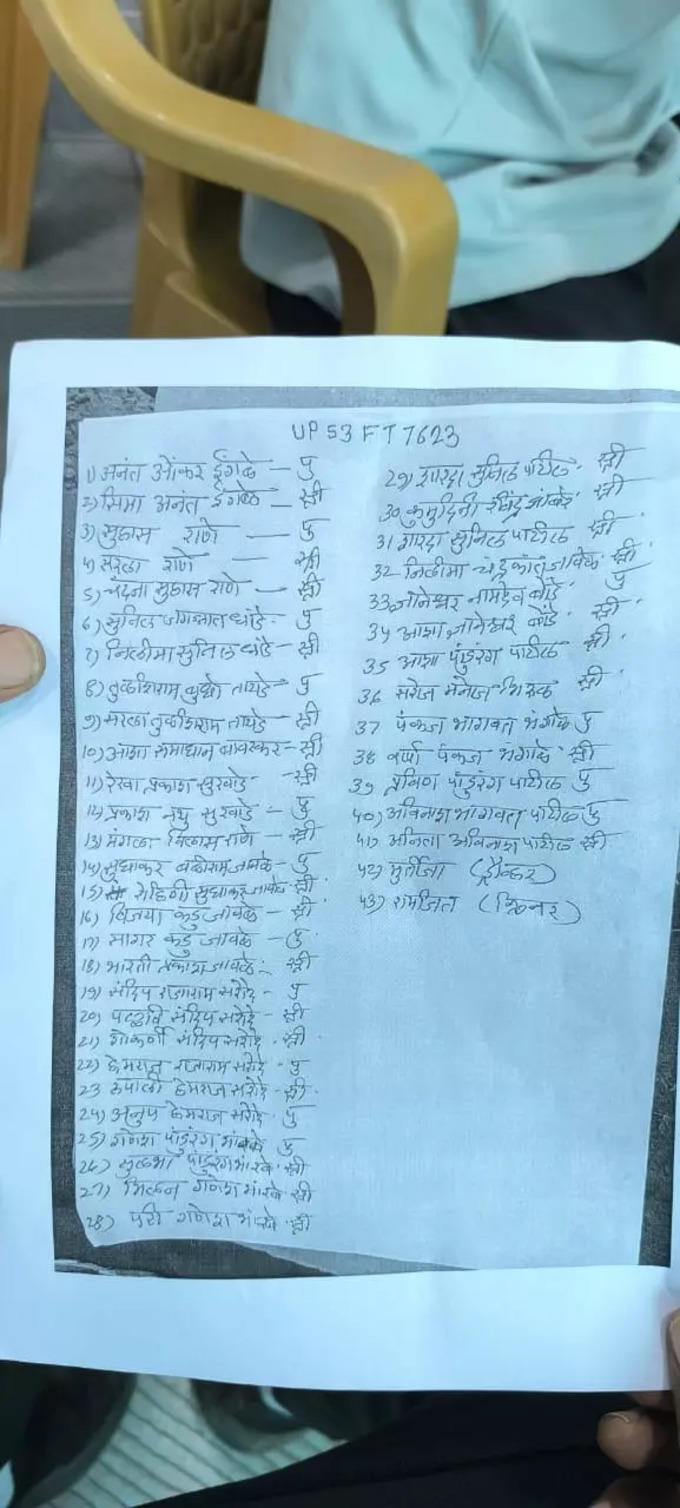 UP 53 FT 7623
1) अनंत ओंकर ईंगळे — पु
2) सिमा अनंत ईंगळे — स्त्री
3) सुहास राणे — पु
4) सरला राणे — स्त्री
5) चंदना सुहास राणे — स्त्री
6) सुनिल जगन्नाथ धांडे - पु
7) निलीमा सुनिल धांडे - स्त्री
8) तुळशिराम बुधो तायडे - पु
9) सरला तुळशिराम तायडे - स्त्री
10) आशा समाधान बावस्कर - स्त्री
11) रेखा प्रकाश सुरवाडे - स्त्री
12) प्रकाश नथु सुरवाडे - पु
13) मंगला विलास राणे - स्त्री
14) सुधाकर बळीराम जावळे - पु
15) रोहिणी सुधाकर जावळे स्त्री
16) विजया कडु जावळे - स्त्री
17) सागर कडु जावळे - पु
18) भारती प्रकाश जावळे - स्त्री
19) संदिप राजाराम सरोदे - पु
20) पल्लवि संदिप सरोदे - स्त्री
21) गोकर्णी संदिप सरोदे - स्त्री
22) हेमराज राजाराम सरोदे - पु
23 रुपाली हेमराज सरोदे - स्त्री
24) अनुप हेमराज सरोदे - पु
25) गणेश पांडुरंग भारंबे पु
26) सुलभा पांडुरंग भारंबे स्त्री
27) मिलन गणेश भारंबे स्त्री
28) परी गणेश भारंबे स्त्री
29) शारदा सुनिल पाटील - स्त्री
30 कुमुदिनी रविंद्र स्त्री
31 शारदा सुनिल पाटील स्त्री
32 निलीमा चंद्रकांत जावळे स्त्री
33 ज्ञानेश्वर नामदेव बोंडे पु
34 आशा ज्ञानेश्वर बोंडे स्त्री
35 आशा पांडुरंग पाटील स्त्री
36 सरोज मनोज स्त्री
37 पंकज भागवत भंगाळे पु
38 वर्षा पंकज भंगाळे स्त्री
39 प्रविण पांडुरंग पाटील पु
40) अविनाश भागवत पाटील पु
41) अनिता अविनाश पाटील स्त्री
42) मुर्तीजा (ड्रायव्हर)
43) रामजित (क्लिनर)